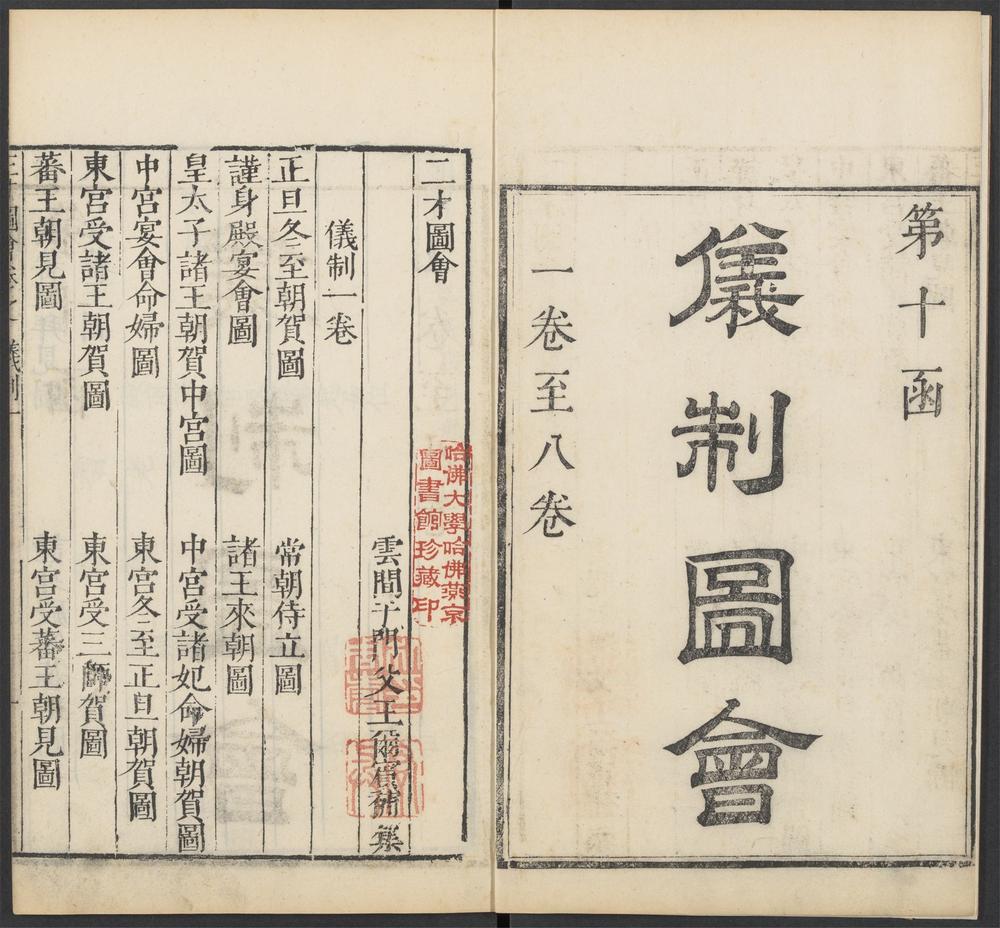 第十函
儀制圖會
一卷至八卷
二才圖會
雲間于門父王爾賓補集
哈佛大學哈佛燕京
圖書館珍藏印
儀制一卷
正旦冬至朝賀圖　常朝侍立圖
謹身殿宴會圖　諸王來朝圖
皇太子諸王朝賀中宮圖　中宮受諸妃命婦朝賀圖
中宮宴會命婦圖　東宮冬至正旦朝賀圖
東宮受諸王朝賀圖　東宮受三師賀圖
蕃王朝見圖　東宮受蕃王朝見圖